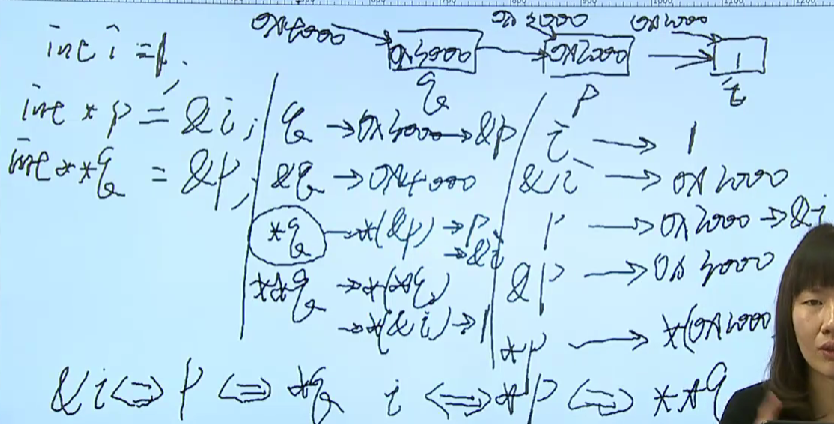 int i = 1;
int *p = &i;
int **q = &p;
0x4000
0x3000
q
0x3000
0x2000
p
0x2000
1
i
q → 0x3000 → &p
&q → 0x4000
*q → *(&p) → p
→ &i
**q → *(*q)
→ *(&i) → 1
i → 1
&i → 0x2000
p → 0x2000 → &i
&p → 0x3000
*p → *(0x2000
&i ⇔ p ⇔ *q
i ⇔ *p ⇔ **q